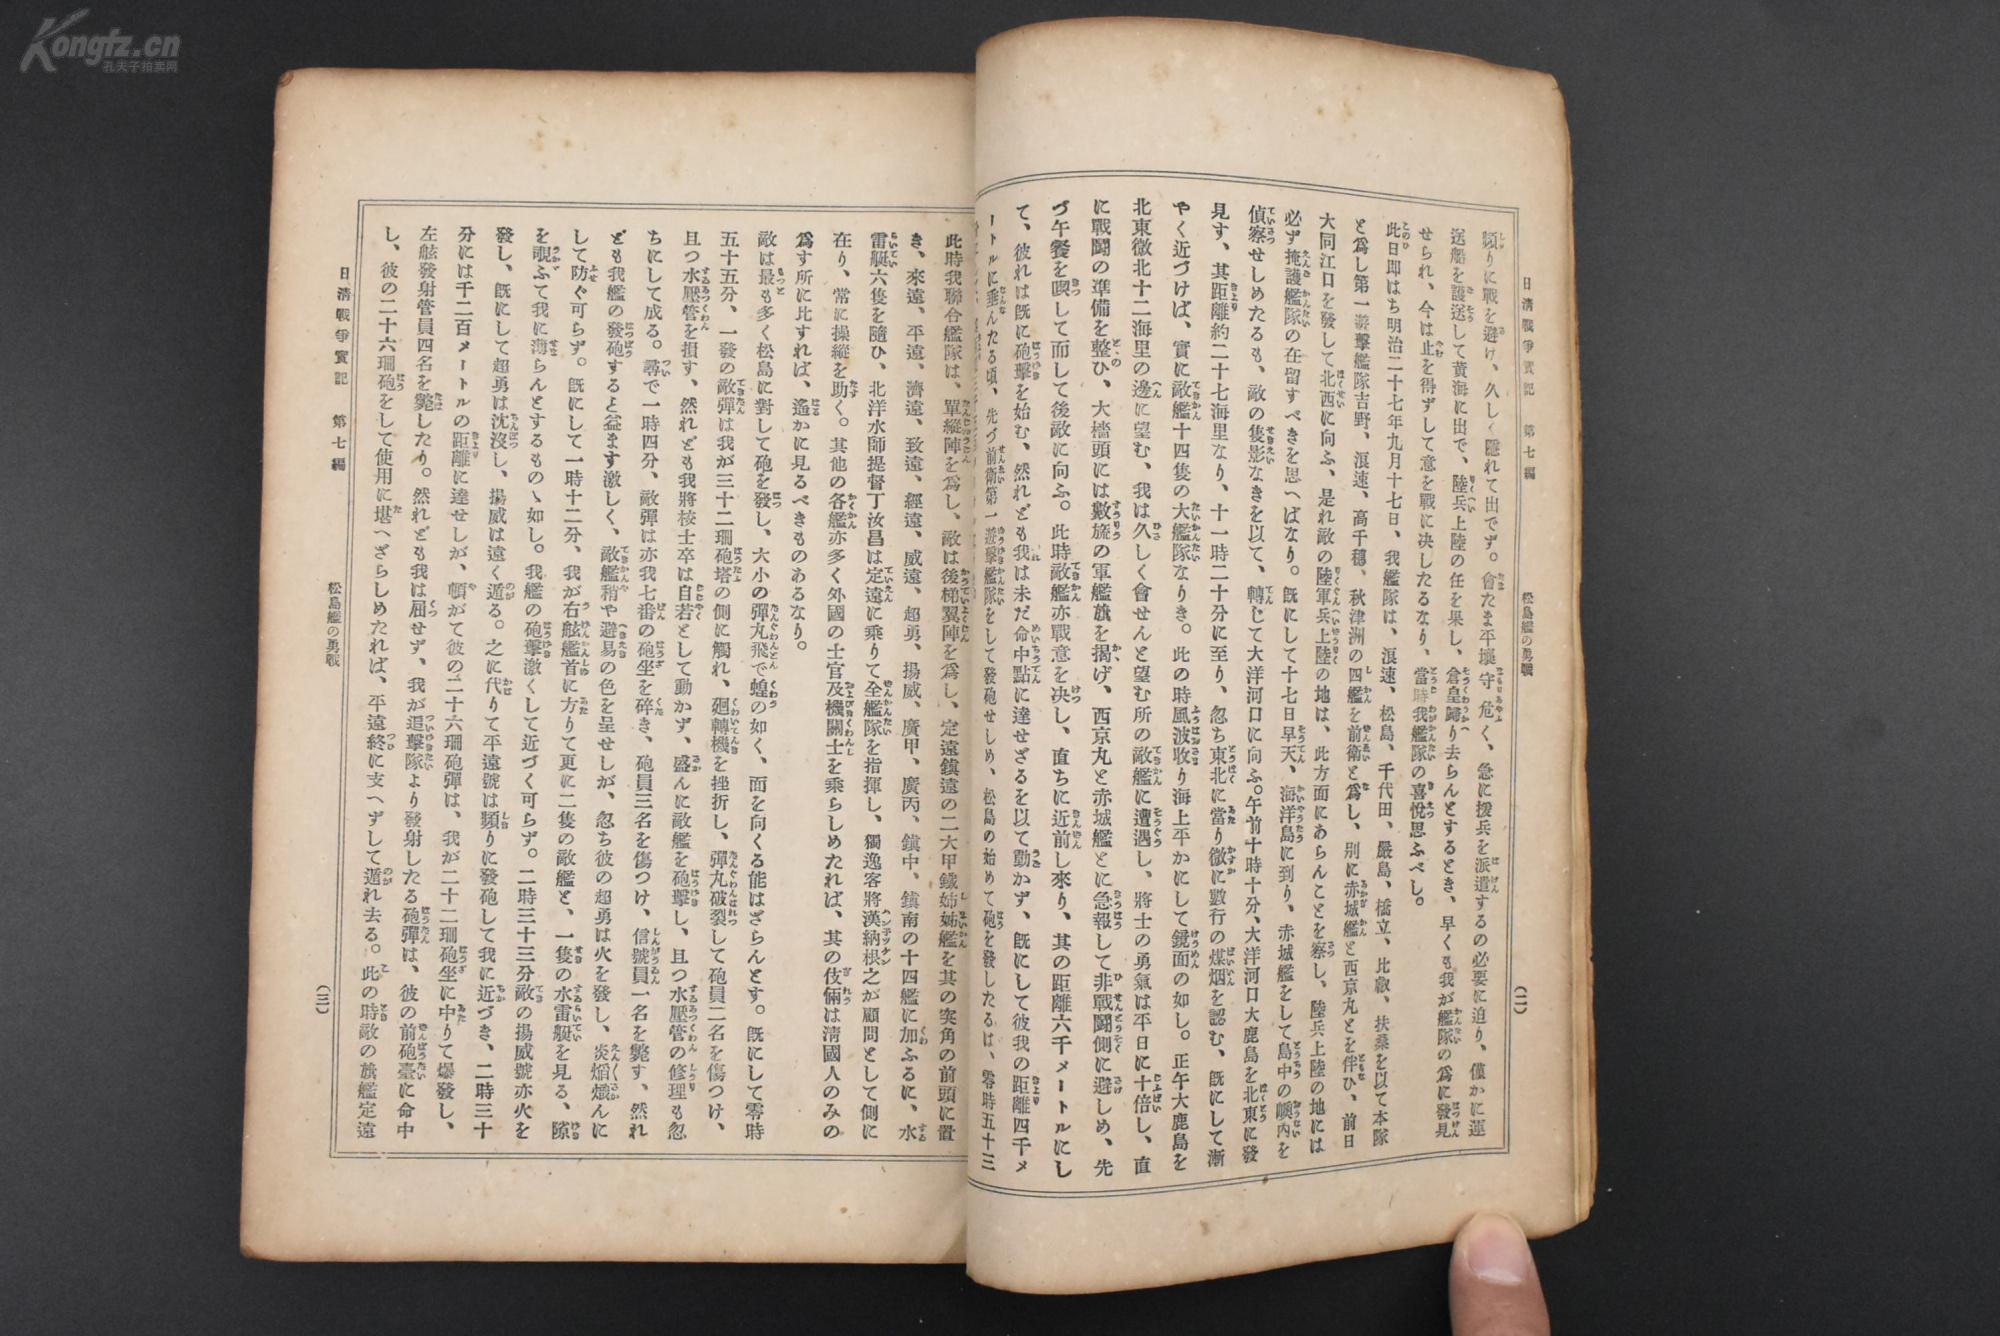 Kongfz.cn
孔夫子拍卖网
日淸戰爭實記 第七編 松島艦の勇戰 (二)
頻りに戰を避け、久しく隱れて出でず。會たま平壤守危く、急に援兵を派遣するの必要に迫り、僅かに運
送船を護送して黃海に出で、陸兵上陸の任を果し、倉皇歸り去らんとするとき、早くも我が艦隊の爲に發見
せられ、今は止を得ずして意を戰に決したるなり、當時我艦隊の喜悅思ふべし。
此日卽はち明治二十七年九月十七日、我艦隊は、浪速、松島、千代田、嚴島、橋立、比叡、扶桑を以て本隊
と爲し第一遊擊艦隊吉野、浪速、高千穗、秋津洲の四艦を前衛と爲し、別に赤城艦と西京丸とを伴ひ、前日
大同江口を發して北西に向ふ、是れ敵の陸軍兵上陸の地は、此方面にあらんことを察し、陸兵上陸の地には
必ず掩護艦隊の在留すべきを思へばなり。旣にして十七日早天、海洋島に到り、赤城艦をして島中の嶼内を
偵察せしめたるも、敵の隻影なきを以て、轉じて大洋河口に向ふ。午前十時十分、大洋河口大鹿島を北東に發
見す、其距離約二十七海里なり、十一時二十分に至り、忽ち東北に當り微に數行の煤烟を認む、旣にして漸
やく近づけば、實に敵艦十四隻の大艦隊なりき。此の時風波收り海上平かにして鏡面の如し。正午大鹿島を
北東微北十二海里の邊に望む、我は久しく會せんと望む所の敵艦に遭遇し、將士の勇氣は平日に十倍し、直
に戰鬪の準備を整ひ、大檣頭には數旒の軍艦旗を揭げ、西京丸と赤城艦とに急報して非戰鬪側に避しめ、先
づ午餐を喫して而して後敵に向ふ。此時敵艦亦戰意を決し、直ちに近前し來り、其の距離六千メートルにし
て、彼れは旣に砲擊を始む、然れども我は未だ命中點に達せざるを以て動かず、旣にして彼我の距離四千メ
ートルに垂んたる頃、先づ前衛第一遊擊艦隊をして發砲せしめ、松島の始めて砲を發したるは、零時五十三
此時我聯合艦隊は、單縱陣を爲し、敵は後梯翼陣を爲し、定遠鎭遠の二大甲鐵姉姊艦を其の突角の前頭に置
き、來遠、平遠、濟遠、致遠、經遠、威遠、超勇、揚威、廣甲、廣丙、鎭中、鎭南の十四艦に加ふるに、水
雷艇六隻を隨ひ、北洋水師提督丁汝昌は定遠に乘りて全艦隊を指揮し、獨逸客將漢納根之が顧問として側に
在り、常に操縱を助く。其他の各艦亦多く外國の士官及機關士を乘らしめたれば、其の伎倆は淸國人のみの
爲す所に比すれば、遙かに見るべきものあるなり。
敵は最も多く松島に對して砲を發し、大小の彈丸飛で蝗の如く、面を向くる能はざらんとす。旣にして零時
五十五分、一發の敵彈は我が三十二珊砲塔の側に觸れ、廻轉機を挫折し、彈丸破裂して砲員二名を傷つけ、
且つ水壓管を損す、然れども我將校士卒は自若として動かず、盛んに敵艦を砲擊し、且つ水壓管の修理も忽
ちにして成る。尋で一時四分、敵彈は亦我七番の砲坐を碎き、砲員三名を傷つけ、信號員一名を斃す、然れ
ども我艦の發砲すると益ます激しく、敵艦稍や避易の色を呈せしが、忽ち彼の超勇は火を發し、炎熖熾んに
して防ぐ可らず。旣にして一時十二分、我が右舷艦首に方りて更に二隻の敵艦と、一隻の水雷艇を見る、隙
を覗ふて我に薄らんとするものゝ如し。我艦の砲擊激くして近づく可らず。二時三十三分敵の揚威號亦火を
發し、旣にして超勇は沈沒し、揚威は遠く遁る。之に代りて平遠號は頻りに發砲して我に近づき、二時三十
分には千二百メートルの距離に達せしが、頓がて彼の二十六珊砲彈は、我が二十二珊砲坐に中りて爆發し、
左舷發射管員四名を斃したり。然れども我は屈せず、我が追擊隊より發射したる砲彈は、彼の前砲臺に命中
し、彼の二十六珊砲をして使用に堪へざらしめたれば、平遠終に支へずして遁れ去る。此の時敵の旗艦定遠
日淸戰爭實記 第七編 松島艦の勇戰 (三)